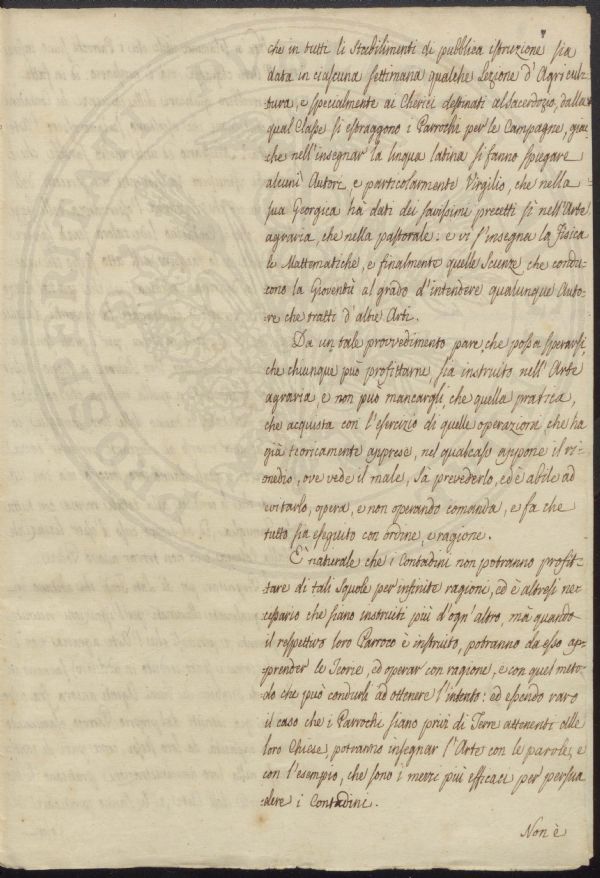 che in tutti li Stabilimenti di pubblica istruzione sia
data in ciascuna settimana qualche Lezione d'Agricul-
tura, e specialmente ai Cherici destinati al Sacerdozio, dalla
qual Classe si estraggono i Parrochi per le Campagne, giac-
che nell'insegnar la lingua latina si fanno spiegare
alcuni Autori, e particolarmente Virgilio, che nella
sua Georgica hà dati dei savissimi precetti sì nell'Arte
agraria, che nella pastorale: e vi s'insegna la Fisica
le Mattematiche, e finalmente quelle Scienze, che condu-
cono la Gioventù al grado d'intendere qualunque Auto-
re che tratti d'altre Arti.
Da un tale provvedimento pare, che possa sperarsi,
che chiunque può profittarne, sia instruito nell'Arte
agraria, e non può mancargli, che quella pratica,
che acquista con l'esercizio di quelle operazioni che ha
già teoricamente apprese, nel qual caso appone il ri-
medio, ove vede il male, sà prevederlo, ed è abile ad
evitarlo, opera, e non operando comanda, e fa che
tutto sia eseguito con ordine, e ragione.
E' naturale che i Contadini non potranno profit-
tare di tali Squole per infinite ragioni, ed è altresì ne-
cessario che siano instruiti più d'ogn'altro, mà quando
il respettivo loro Parroco è instruito, potranno da esso ap-
prender le Teorie, ed operar con ragione, e con quel meto-
do che può condurli ad ottenere l'intento: ed essendo raro
il caso che i Parrochi siano privi di Terre attenenti alle
loro Chiese potranno insegnar l'Arte con le parole, e
con l'esempio, che sono i mezzi più efficaci per persua-
dere i Contadini.
Non è